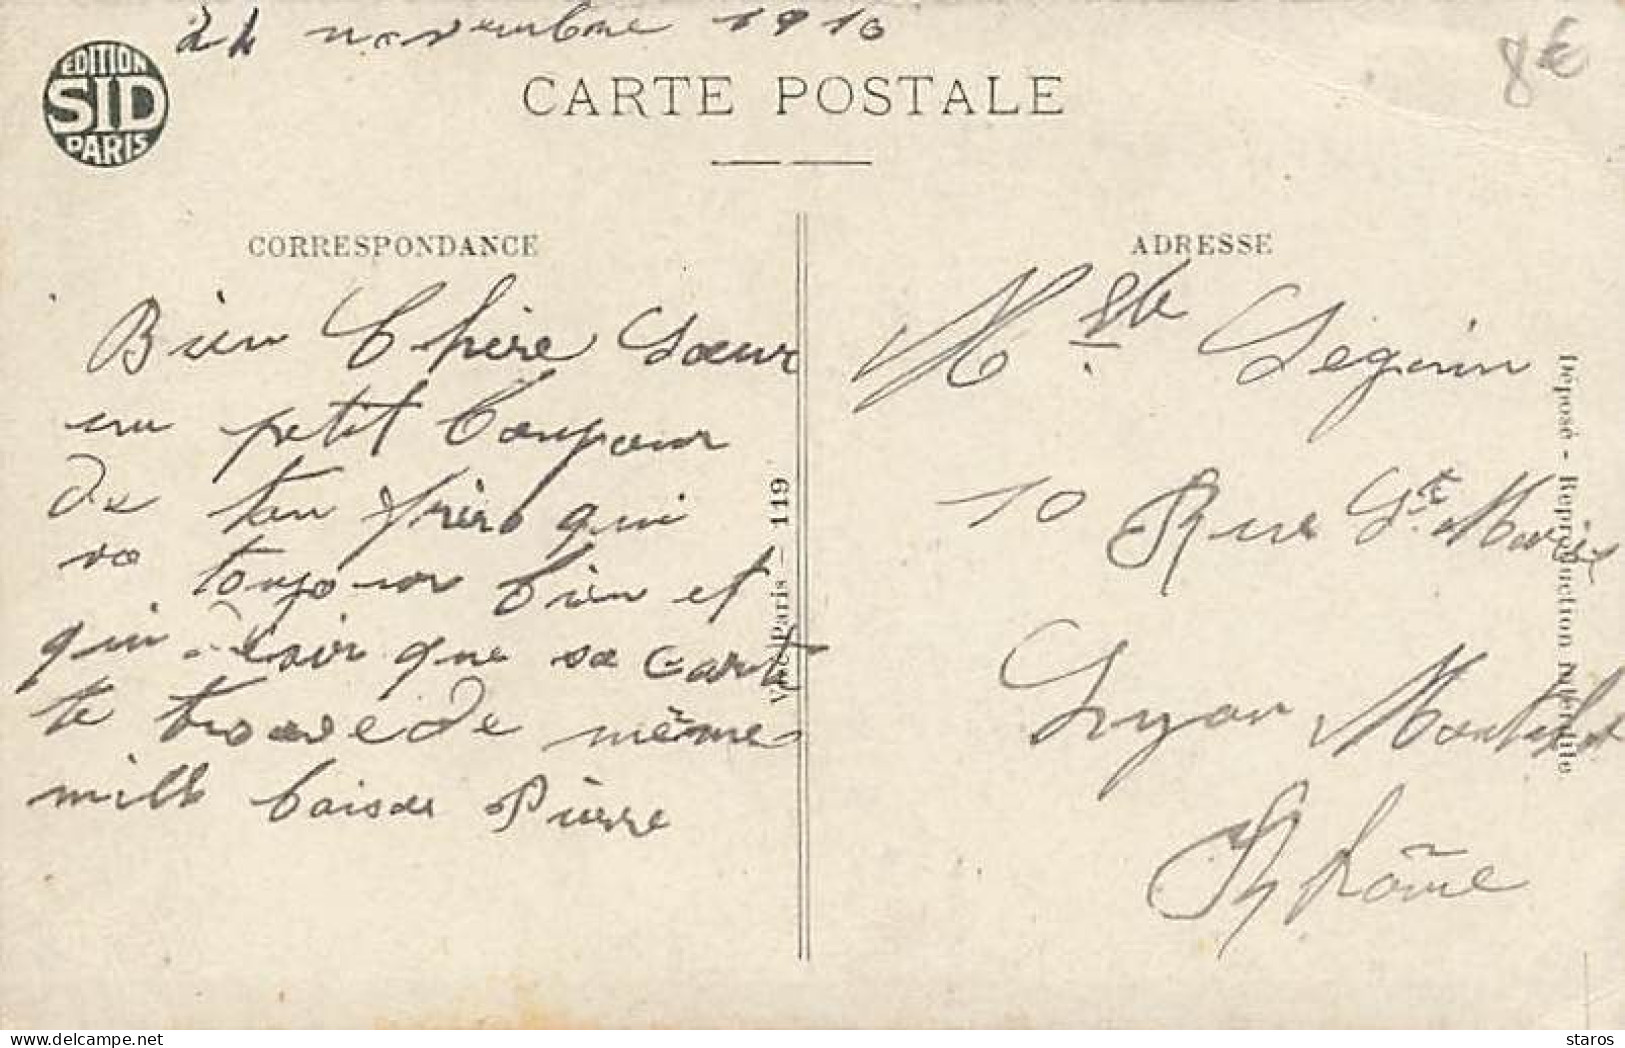 24 novembre 1916
8€
EDITION
SID
PARIS
CARTE POSTALE
CORRESPONDANCE
Bien Chère Sœur
un petit bonjour
de ton frère qui
va toujour bien et
qui désir que sa carte
te trouve de même
mille baiser Pierre
Visé Paris - 119
ADRESSE
Mselle Segouin
10 Rue Ste Marie
Lyon
Rhône
Déposé - Reproduction Interdite
staros